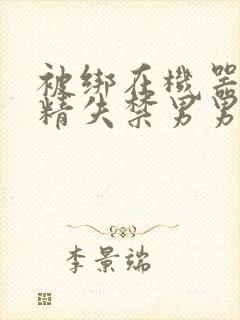 被绑在機器
精失禁男男
李景端